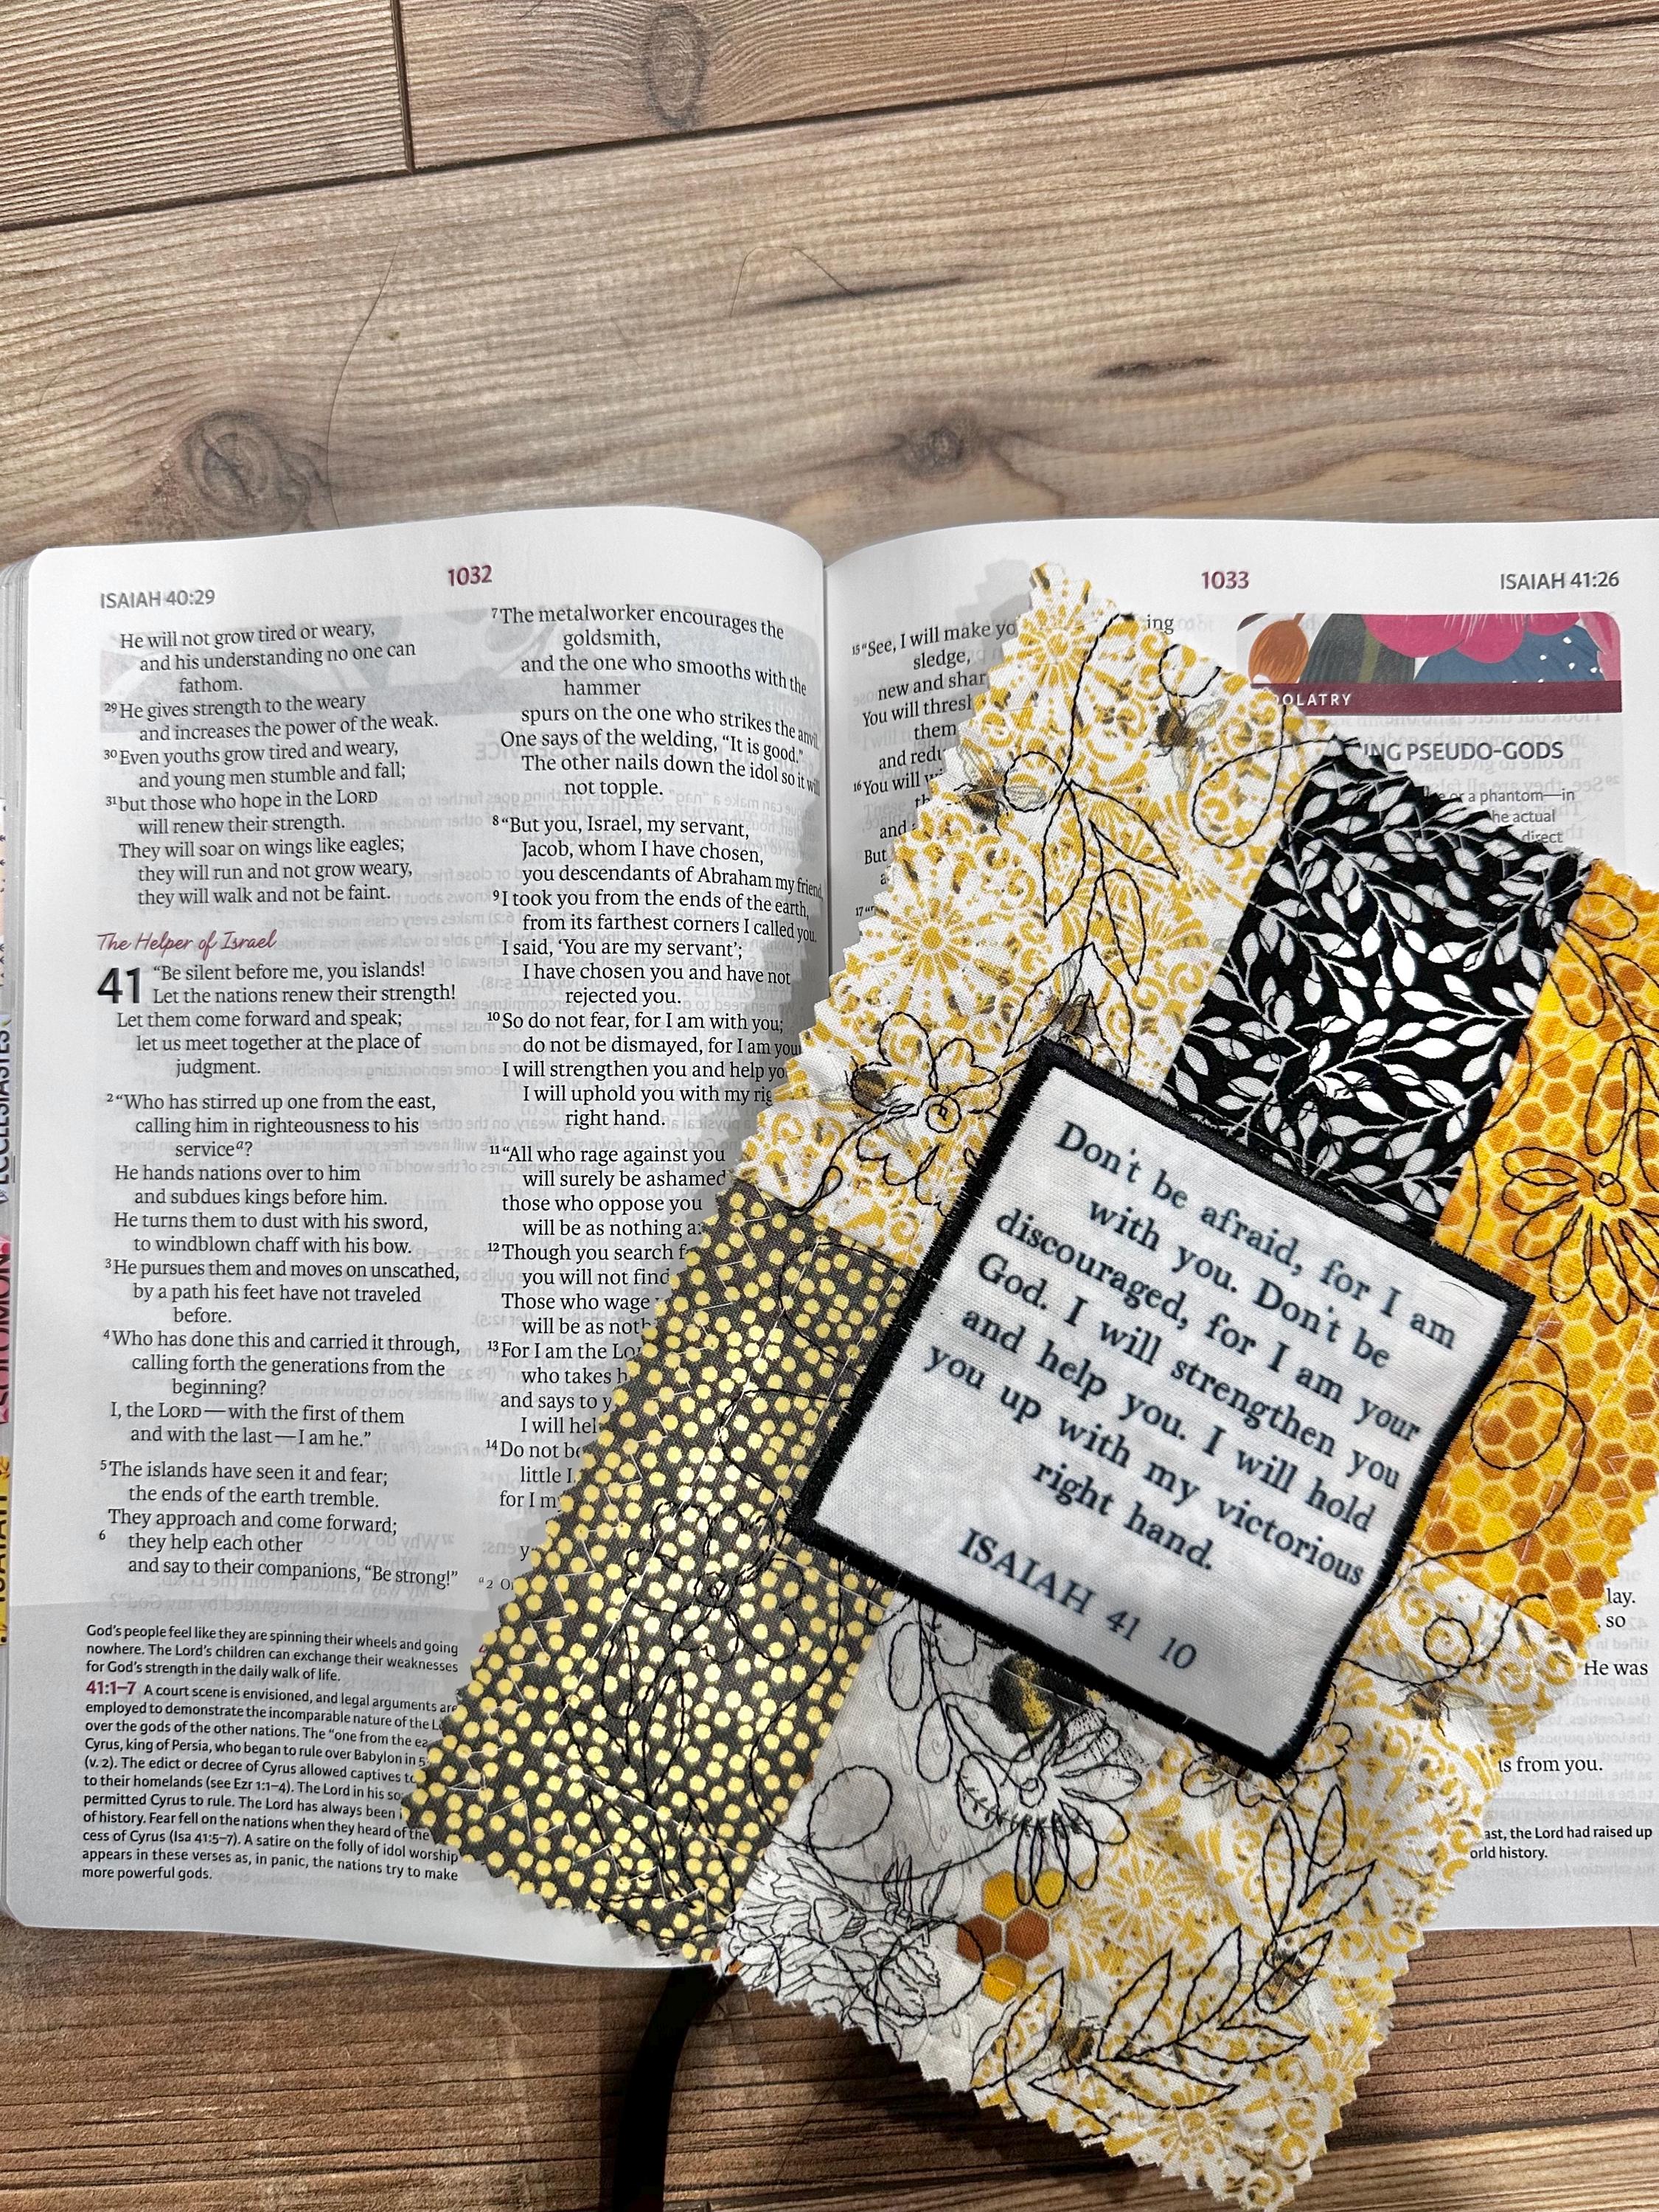 ISAIAH 40:29
1032
He will not grow tired or weary,
and his understanding no one can
fathom.
29 He gives strength to the weary
and increases the power of the weak.
30 Even youths grow tired and weary,
and young men stumble and fall;
31 but those who hope in the LORD
will renew their strength.
They will soar on wings like eagles;
they will run and not grow weary,
they will walk and not be faint.
The Helper of Israel
41 “Be silent before me, you islands!
Let the nations renew their strength!
Let them come forward and speak;
let us meet together at the place of
judgment.
2 “Who has stirred up one from the east,
calling him in righteousness to his
service a?
He hands nations over to him
and subdues kings before him.
He turns them to dust with his sword,
to windblown chaff with his bow.
3 He pursues them and moves on unscathed,
by a path his feet have not traveled
before.
4 Who has done this and carried it through,
calling forth the generations from the
beginning?
I, the LORD—with the first of them
and with the last—I am he.”
5 The islands have seen it and fear;
the ends of the earth tremble.
They approach and come forward;
6 they help each other
and say to their companions, “Be strong!”
7 The metalworker encourages the
goldsmith,
and the one who smooths with the
hammer
spurs on the one who strikes the anvil.
One says of the welding, “It is good.”
The other nails down the idol so it will
not topple.
8 “But you, Israel, my servant,
Jacob, whom I have chosen,
you descendants of Abraham my friend,
9 I took you from the ends of the earth,
from its farthest corners I called you.
I said, ‘You are my servant’;
I have chosen you and have not
rejected you.
10 So do not fear, for I am with you;
do not be dismayed, for I am you
I will strengthen you and help yo
I will uphold you with my rig
right hand.
11 “All who rage against you
will surely be ashamed
those who oppose you
will be as nothing a
12 Though you search f
you will not find
Those who wage
will be as noth
13 For I am the Lo
who takes h
and says to y
I will hel
14 Do not be
little I
for I m
God’s people feel like they are spinning their wheels and going
nowhere. The Lord’s children can exchange their weaknesses
for God’s strength in the daily walk of life.
41:1–7 A court scene is envisioned, and legal arguments are
employed to demonstrate the incomparable nature of the L
over the gods of the other nations. The “one from the ea
Cyrus, king of Persia, who began to rule over Babylon in 5
(v. 2). The edict or decree of Cyrus allowed captives to
to their homelands (see Ezr 1:1–4). The Lord in his so
permitted Cyrus to rule. The Lord has always been i
of history. Fear fell on the nations when they heard of the
cess of Cyrus (Isa 41:5–7). A satire on the folly of idol worship
appears in these verses as, in panic, the nations try to make
more powerful gods.
1033
ISAIAH 41:26
15 “See, I will make yo
ing
sledge,
new and shar
You will thresh
them
and redu
16 You will wi
th
and
But
17 “
OLATRY
NG PSEUDO-GODS
or a phantom—in
he actual
direct
lay.
so
He was
is from you.
ast, the Lord had raised up
orld history.
Don't be afraid, for I am
with you. Don't be
discouraged, for I am your
God. I will strengthen you
and help you. I will hold
you up with my victorious
right hand.
ISAIAH 41 10
ECCLESIASTES